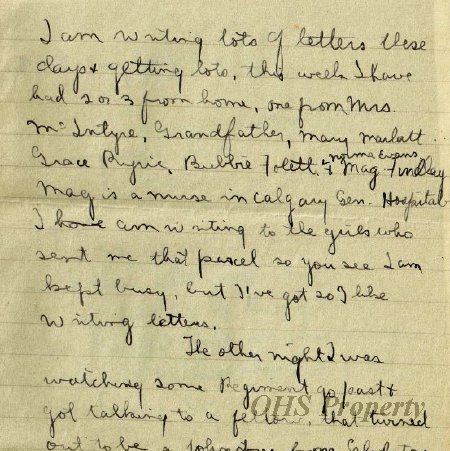 I am writing lots of letters these
days & getting lots, this week I have
had 2 or 3 from home, one from Mrs.
McIntyre, Grandfather, Mary Marlatt
Grace Pyrie, Bubbie Folett, Norma Evans
& Mag Findlay
Mag is a nurse in Calgary Gen. Hospital
I have am writing to the girls who
sent me that parcel so you see I am
kept busy, but I've got so I like
writing letters.
The other night I was
watching some Regiment go past &
got talking to a fellow, that turned
out to be a
OHS Property